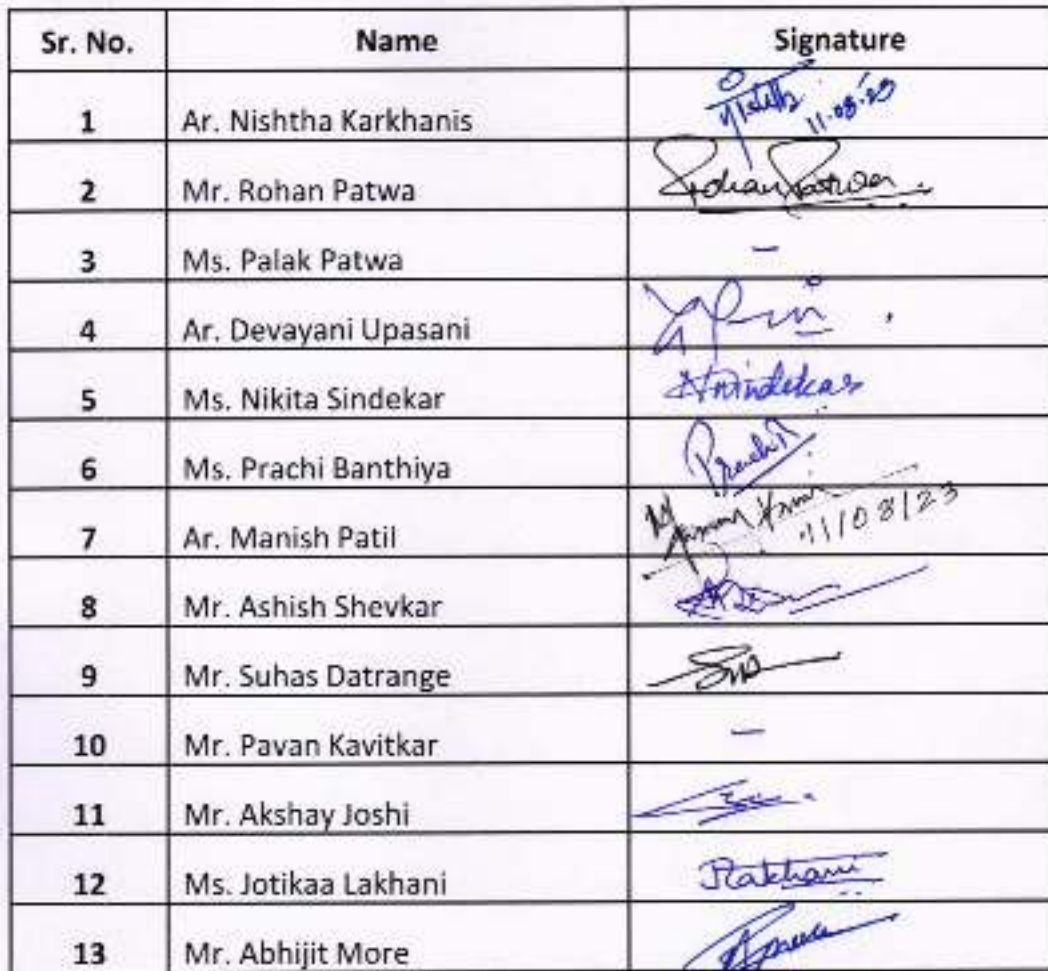 Sr. No. Name Signature
1 Ar. Nishtha Karkhanis 11-08-23
2 Mr. Rohan Patwa Rohan Patwa
3 Ms. Palak Patwa –
4 Ar. Devayani Upasani
5 Ms. Nikita Sindekar
6 Ms. Prachi Banthiya
7 Ar. Manish Patil 11/08/23
8 Mr. Ashish Shevkar
9 Mr. Suhas Datrange
10 Mr. Pavan Kavitkar –
11 Mr. Akshay Joshi
12 Ms. Jotikaa Lakhani
13 Mr. Abhijit More